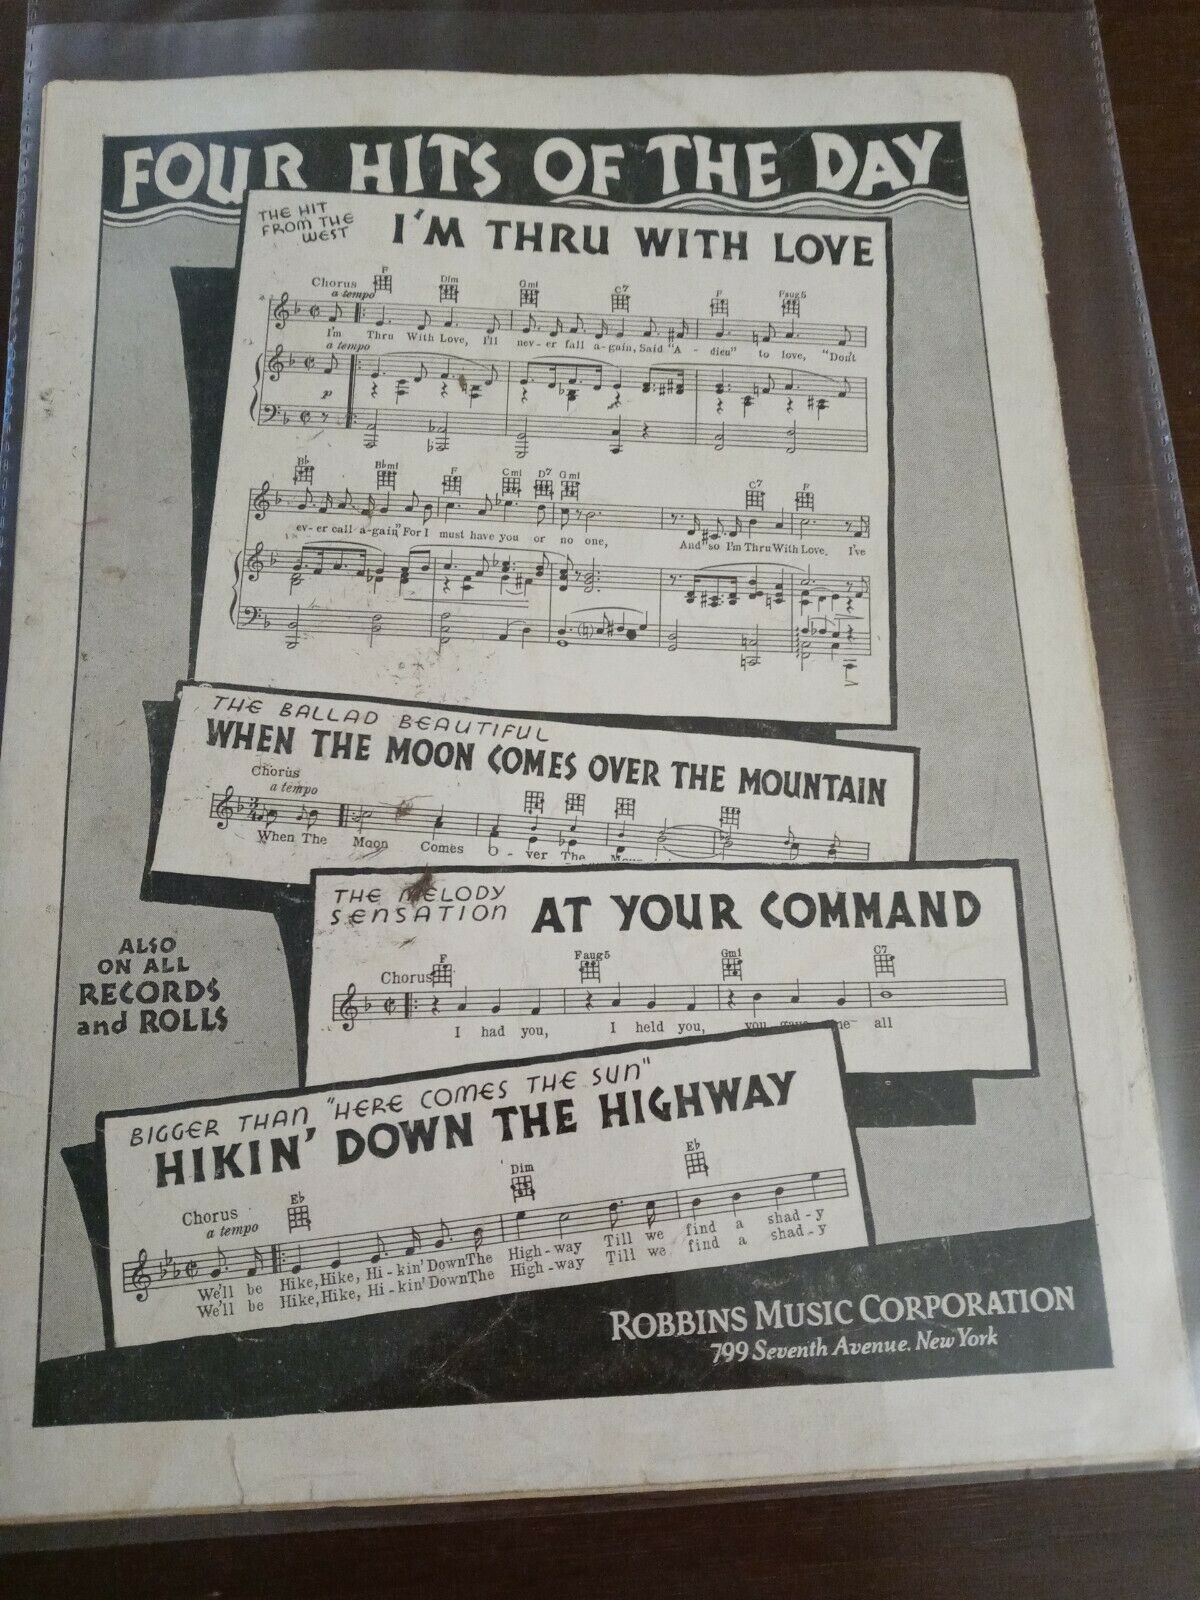 FOUR HITS OF THE DAY
THE HIT
FROM THE
WEST
I'M THRU WITH LOVE
F Dim Gmi C7 F Faug5
Chorus
a tempo
I'm Thru With Love, I'll nev-er fall a-gain, Said "A-dieu" to love, "Don't
a tempo
p
Bb Bbmi F Cmi D7 Gmi C7 F
ev-er call a-gain," For I must have you or no one, And so I'm Thru With Love. I've
THE BALLAD BEAUTIFUL
WHEN THE MOON COMES OVER THE MOUNTAIN
Chorus
a tempo
When The Moon Comes O-ver The
THE MELODY
SENSATION
AT YOUR COMMAND
F Faug5 Gmi C7
Chorus
I had you, I held you, you gave me all
ALSO
ON ALL
RECORDS
and ROLLS
BIGGER THAN "HERE COMES THE SUN"
HIKIN' DOWN THE HIGHWAY
Eb Dim Eb
Chorus
a tempo
We'll be Hike, Hike, Hi-kin' Down The High-way Till we find a shad-y
We'll be Hike, Hike, Hi-kin' Down The High-way Till we find a shad-y
ROBBINS MUSIC CORPORATION
799 Seventh Avenue, New York